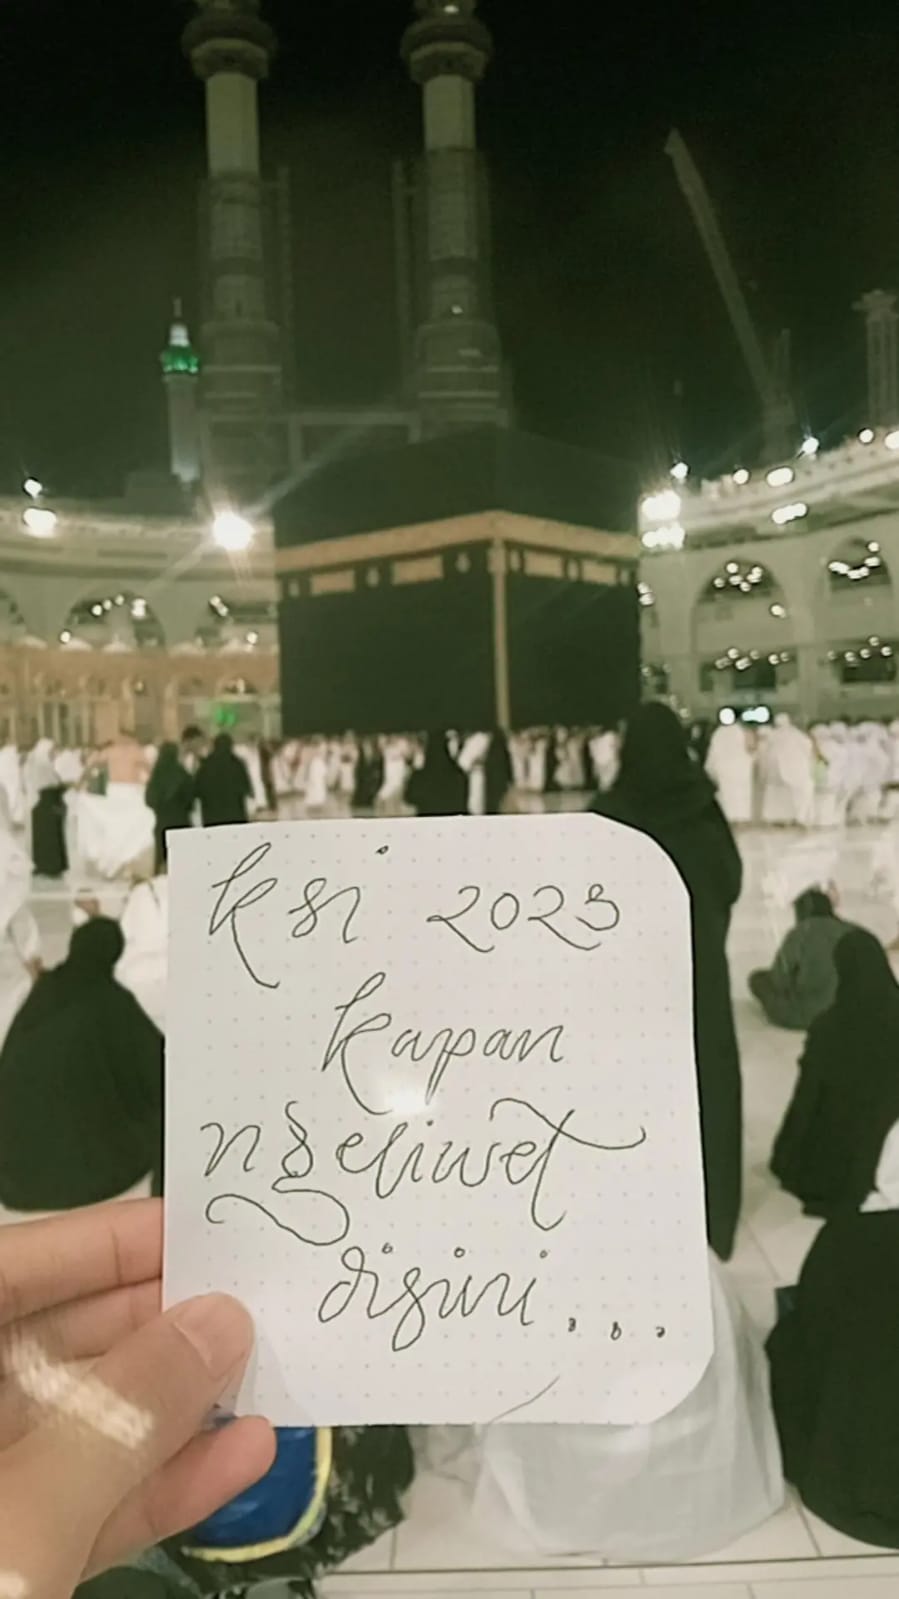 ksi 2023
kapan
ngeliwet
disini...